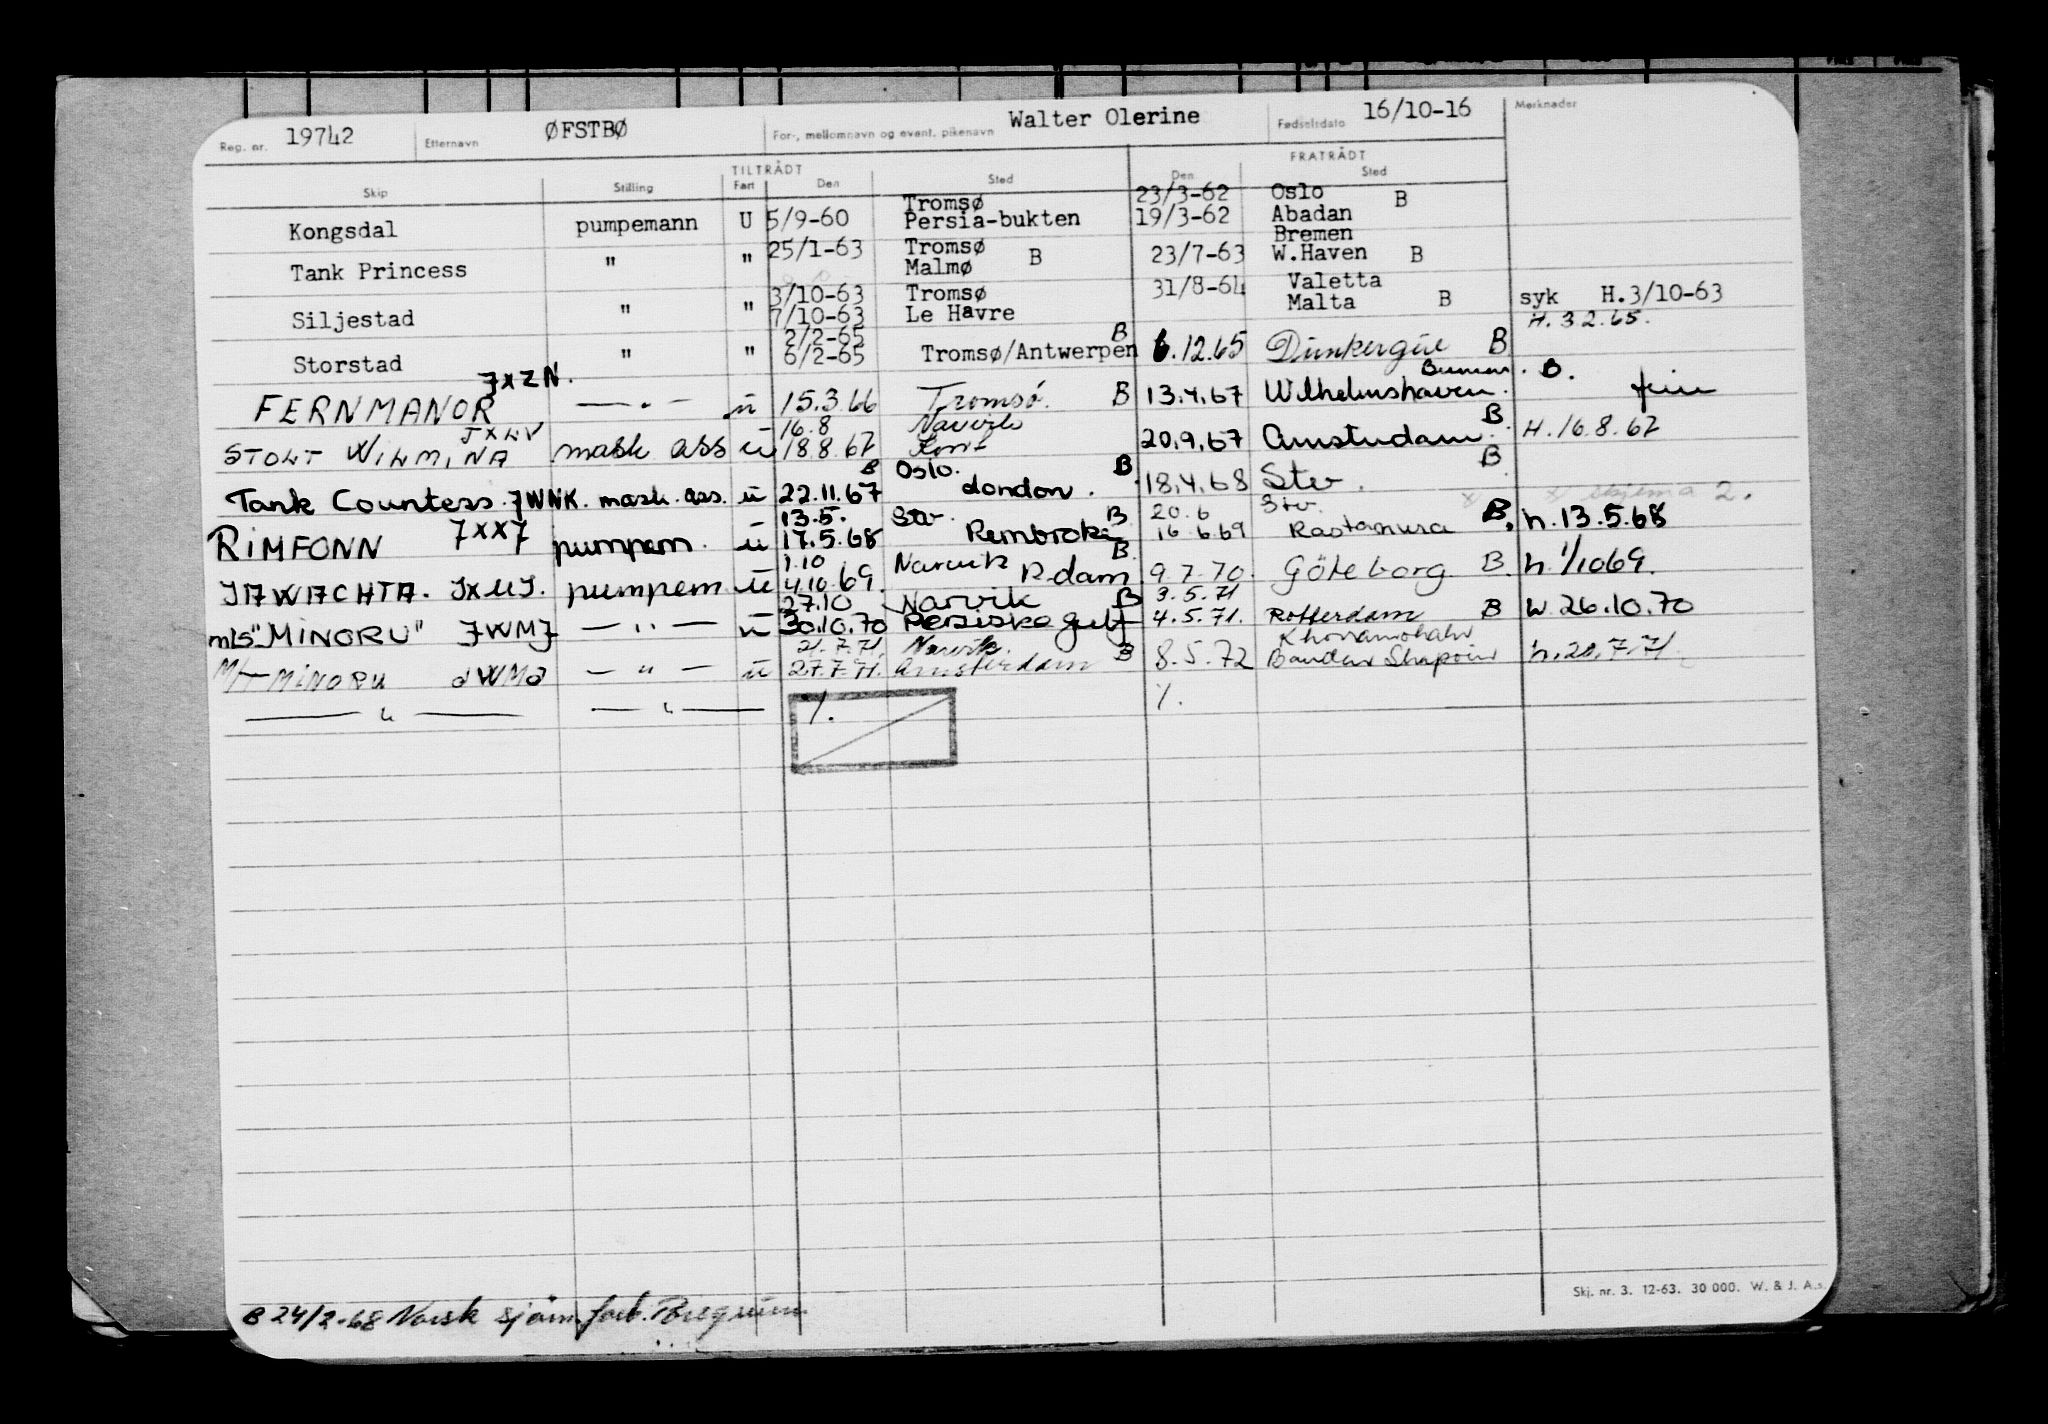 Reg. nr. 19742 Etternavn ØFSTBØ For-, mellomnavn og event. pikenavn Walter Olerine Fødselsdato 16/10-16 Merknader
TILTRÅDT FRATRÅDT
Skip Stilling Fart Den Sted Den Sted
Tromsø 23/3-62 Oslo B
Kongsdal pumpemann U 5/9-60 Persia-bukten 19/3-62 Abadan
25/1-63 Tromsø Bremen
Tank Princess " " Malmø B 23/7-63 W.Haven B
3/10-63 Tromsø 31/8-64 Valetta
Siljestad " " 7/10-63 Le Havre Malta B syk H.3/10-63
2/2-65 B H. 3.2.65.
Storstad " " 6/2-65 Tromsø/Antwerpen 6.12.65 Dunkerque B
Bremen. B.
FERNMANOR JXZN. — " — u 15.3.66 Tromsø. B 13.4.67 Wilhelmshaven.
16.8 Narvik B
STOLT WILMINA JXLV mask ass u 18.8.67 20.9.67 Amsterdam. H. 16.8.67
B Oslo. B B
Tank Countess. JWNK. mask. ass. u 22.11.67 London. 18.4.68 Stv.
x x skjema 2.
13.5. Stv. B 20.6 Stv.
RIMFONN JXXJ pumpem. u 17.5.68 Pembroke 16.6.69 Rastanura B. h. 13.5.68
1.10 Narvik B
JAWACHTA. JXUJ. pumpem u 4.10.69. R.dam 9.7.70. Göteborg B h. 1/10 69.
27.10 Narvik B 3.5.71
m/s "MINORU" JWMJ — " — u 30.10.70 Persiske Gulf 4.5.71. Rotterdam B h. 26.10.70
21.7.71. Narvik.
M/T MINORU JWMJ — " — u 27.7.71. Amsterdam B 8.5.72 Bandar Shapour h. 20.7.71
— " — — " — /. /.
Skj. nr. 3. 12-63. 30 000. W. & J. A.s.
B 24/2-68 Norsk sjøm.forb.